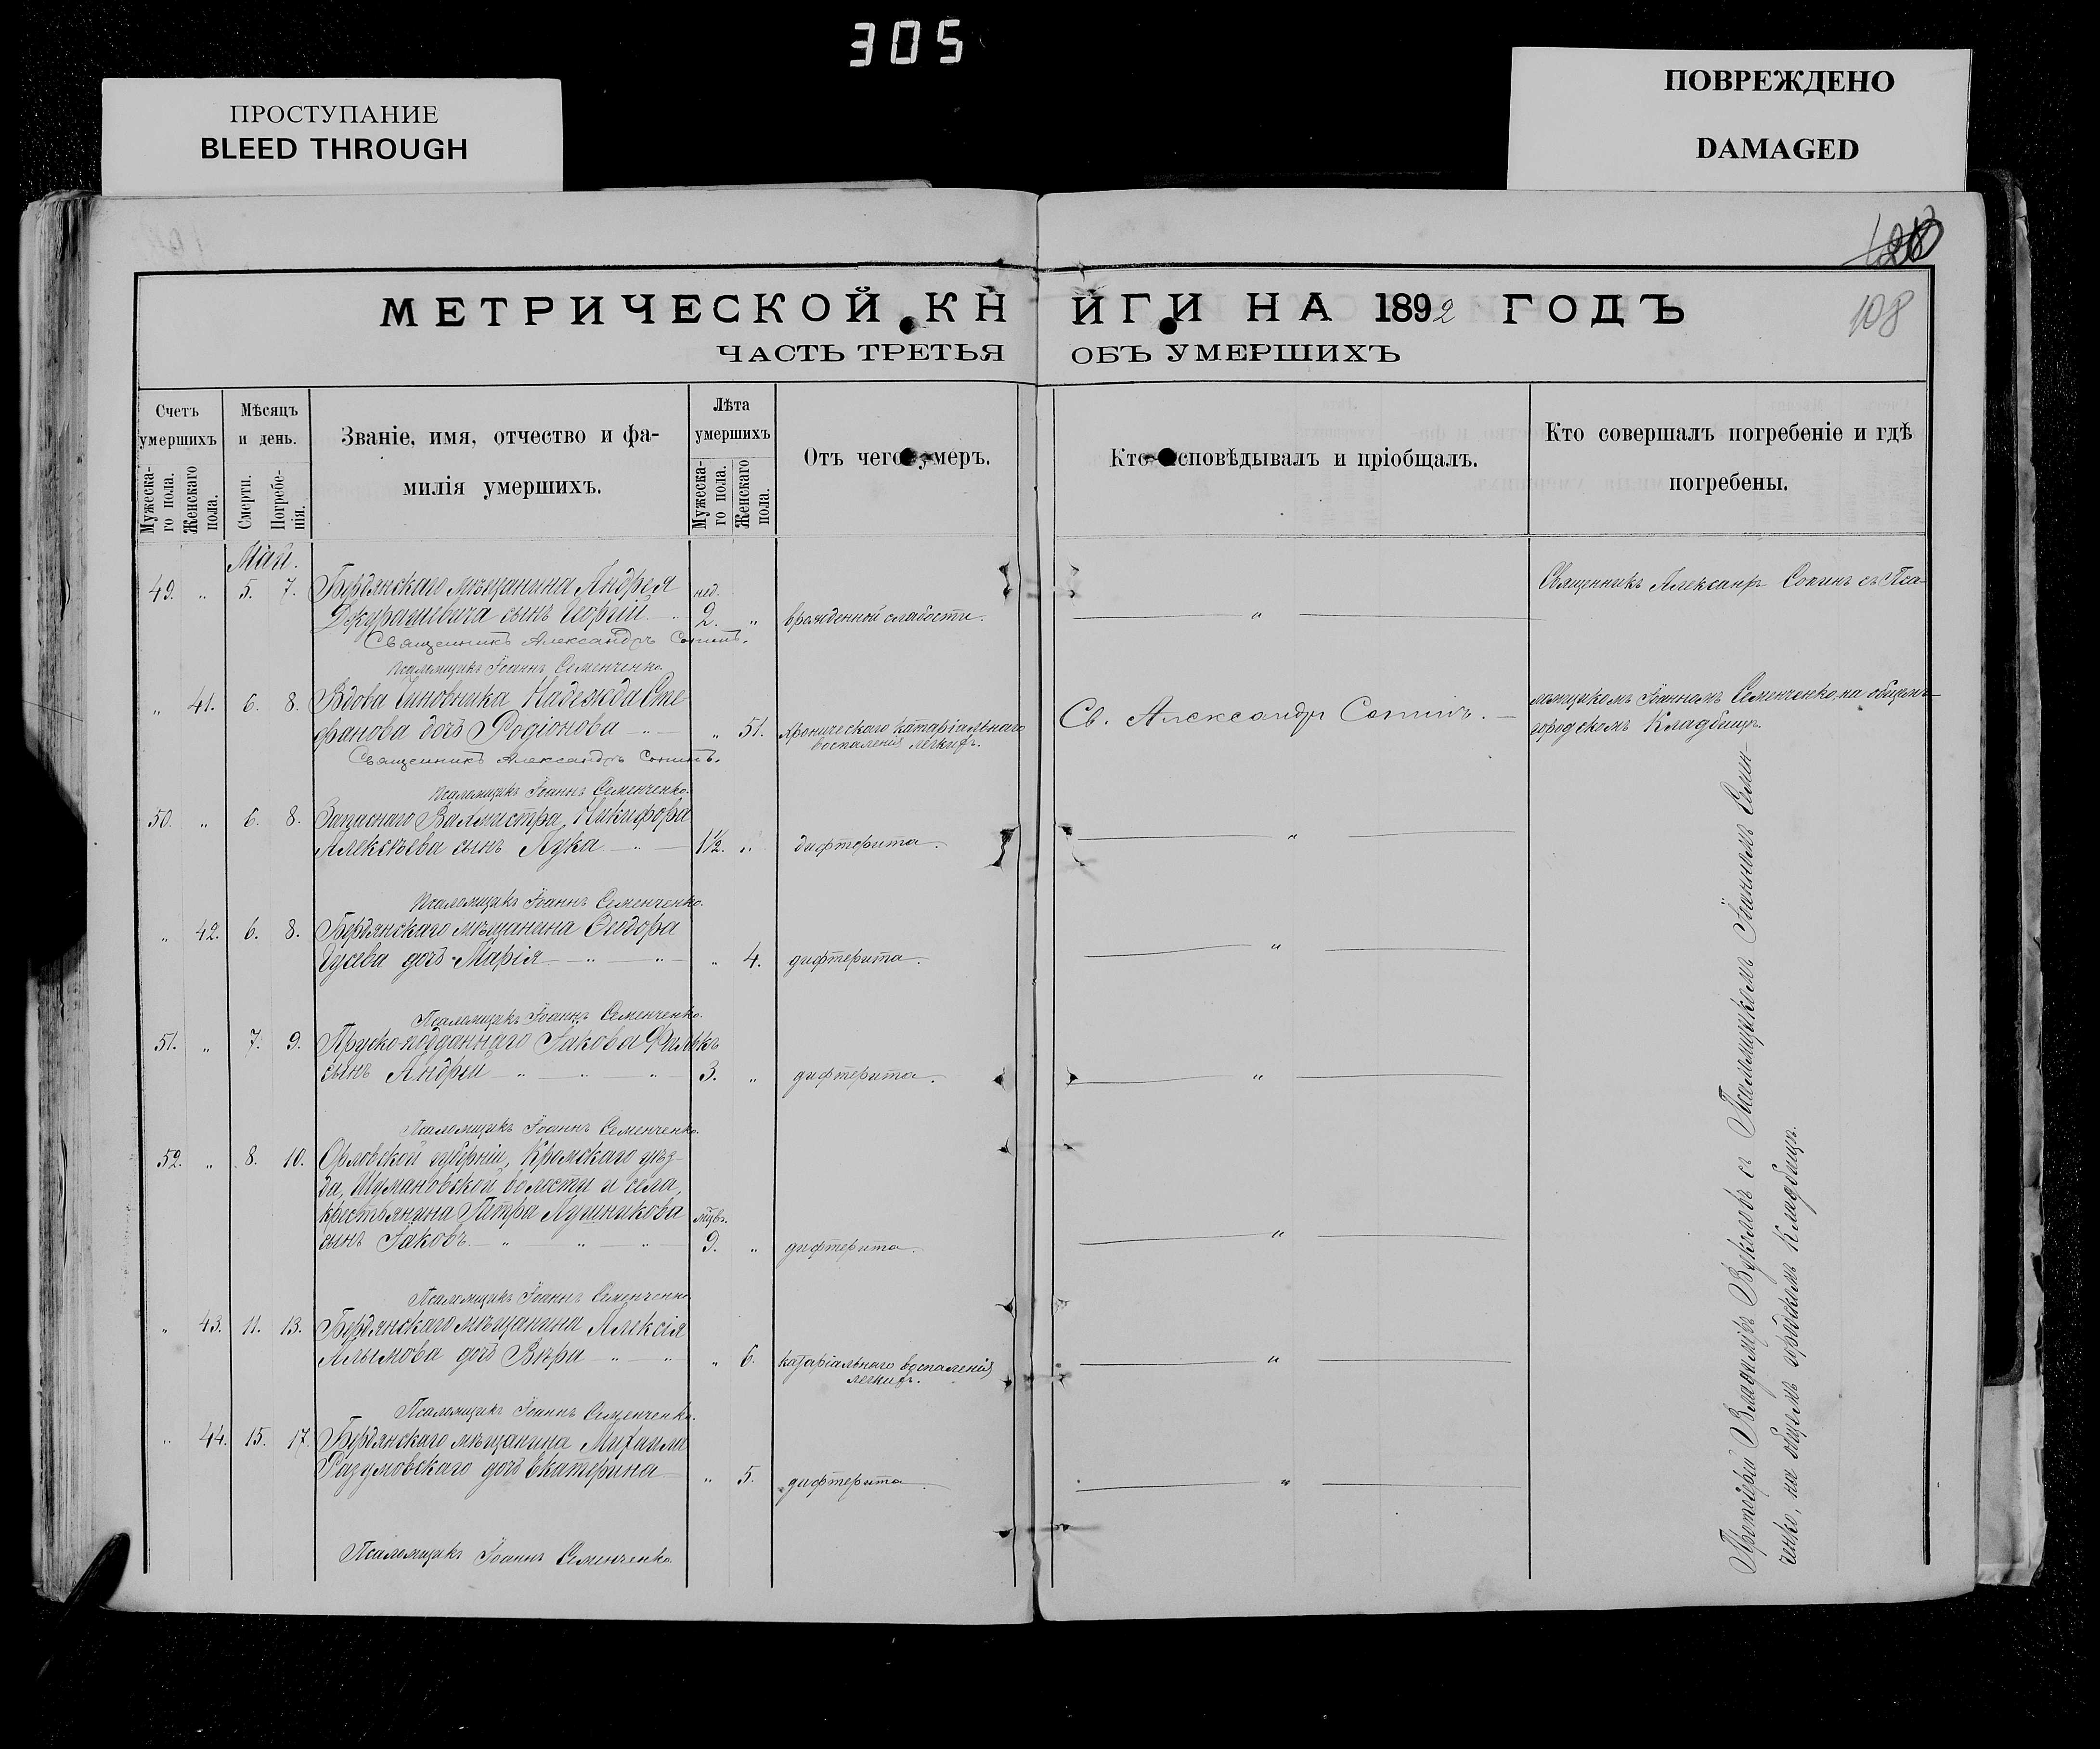 305
ПРОСТУПАНИЕ
BLEED THROUGH
ПОВРЕЖДЕНО
DAMAGED
108
МЕТРИЧЕСКОЙ КНИГИ НА 1892 ГОДЪ
ЧАСТЬ ТРЕТЬЯ ОБЪ УМЕРШИХЪ
Счетъ умершихъ
Мужеска-го пола.
Женскаго пола.
Мѣсяцъ и день.
Смерти.
Погребе-нія.
Званіе, имя, отчество и фа-
милія умершихъ.
Лѣта умершихъ
Мужеска-го пола.
Женскаго пола.
Отъ чего умеръ.
Кто исповѣдывалъ и пріобщалъ.
Кто совершалъ погребеніе и гдѣ
погребены.
Май.
49. „ 5. 7. Бердянскаго мѣщанина Андрея нед.
Джурашевича сынъ Георгій 2. „ врожденной слабости. „
Священникъ Александръ Сопинъ.
Псаломщикъ Іоаннъ Семенченко.
Священникъ Александръ Сопинъ съ Пса-
„ 41. 6. 8. Вдова Чиновника Надежда Сте-
фанова дочь Родіонова „ 51. хроническаго катаріальнаго
воспаленія легкихъ.
Св. Александръ Сопинъ.
ломщикомъ Іоанномъ Семенченко, на общемъ
городскомъ Кладбищѣ.
Священникъ Александръ Сопинъ.
Псаломщикъ Іоаннъ Семенченко.
50. „ 6. 8. Запаснаго Вахмистра, Никифора
Алексѣева сынъ Лука 1½. „ дифтерита. „
Псаломщикъ Іоаннъ Семенченко.
„ 42. 6. 8. Бердянскаго мѣщанина Ѳеодора
Гусева дочь Марія „ 4. дифтерита. „
Псаломщикъ Іоаннъ Семенченко.
51. „ 7. 9. Пруско-подданнаго Іакова
сынъ Андрей 3. „ дифтерита. „
Псаломщикъ Іоаннъ Семенченко.
52. „ 8. 10. Орловской губерніи, Кромскаго уѣз-
да, Шумановской волости и села,
крестьянина Петра Лушникова мѣс.
сынъ Іаковъ 9. „ дифтерита. „
Псаломщикъ Іоаннъ Семенченко
„ 43. 11. 13. Бердянскаго мѣщанина Алексія
Алымова дочь Вѣра „ 6. катаріальнаго воспаленія
легкихъ. „
Псаломщикъ Іоаннъ Семенченко.
„ 44. 15. 17. Бердянскаго мѣщанина Михаила
Разумовскаго дочь Екатерина „ 5. дифтерита. „
Псаломщикъ Іоаннъ Семенченко
Протоіерей Владиміръ съ Псаломщикомъ Іоанномъ Семен-
ченко, на общемъ городскомъ Кладбищѣ.